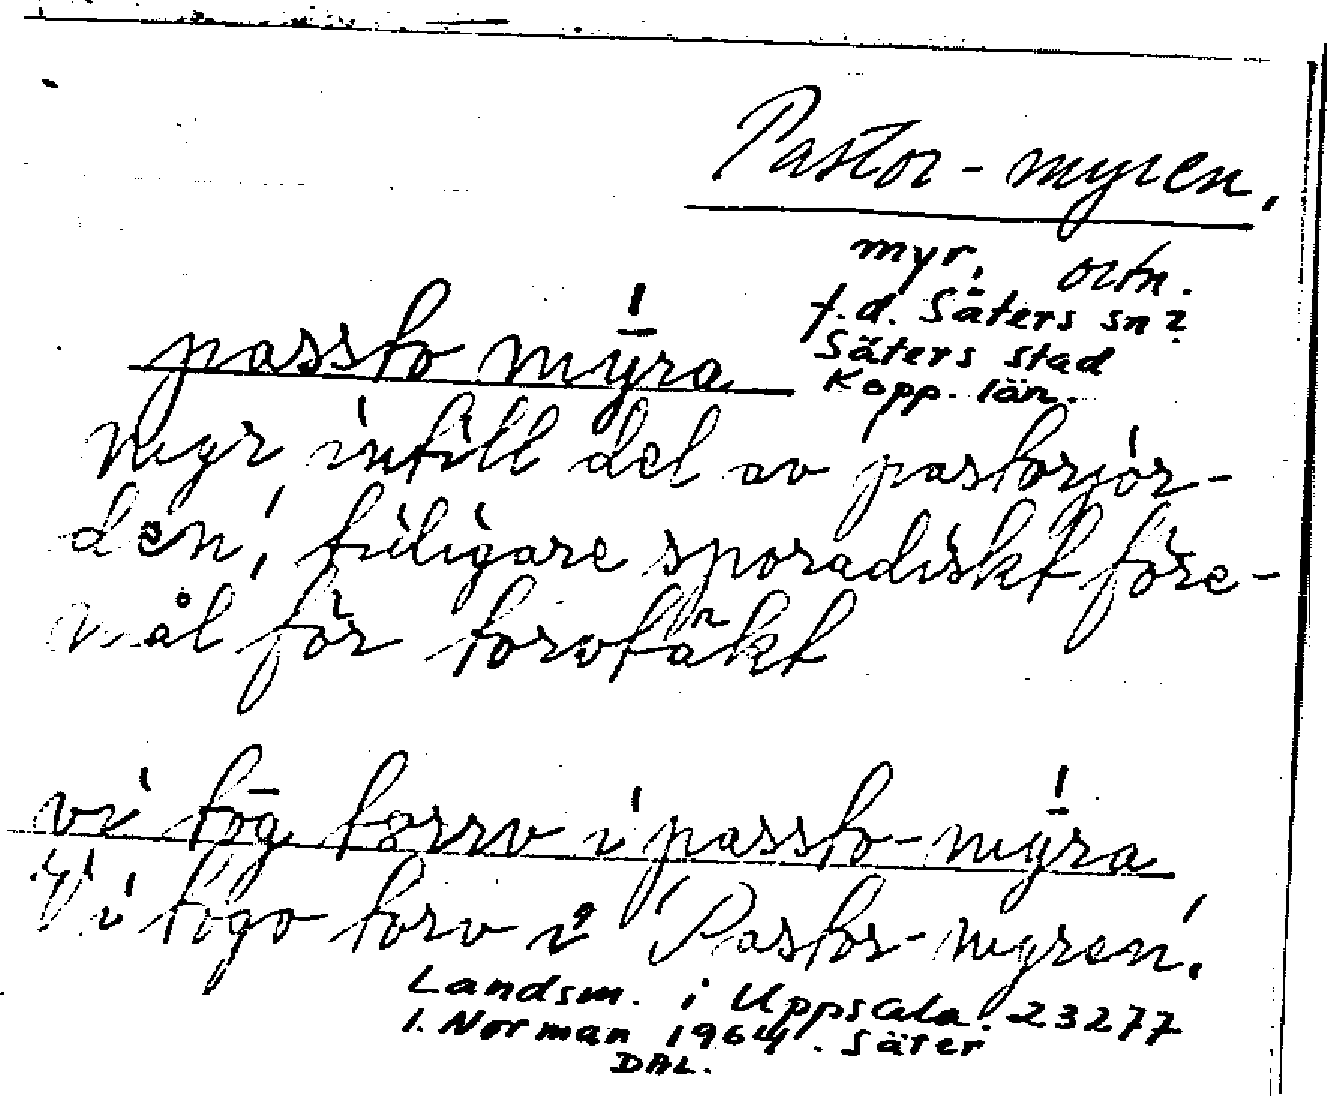 Pastor-myren,
myr, ortn.
f.d. Säters sn?
Säters stad
Kopp. län.
passto mȳra
myr intill del av pastorjor-
den, tidigare sporadiskt före-
mål för torvtäkt
vi tōg torrv i passto-mȳra
Vi togo torv i Pastor-myren.
Landsm. i Uppsala. 23277
I. Norman 1964. Säter
DAL.